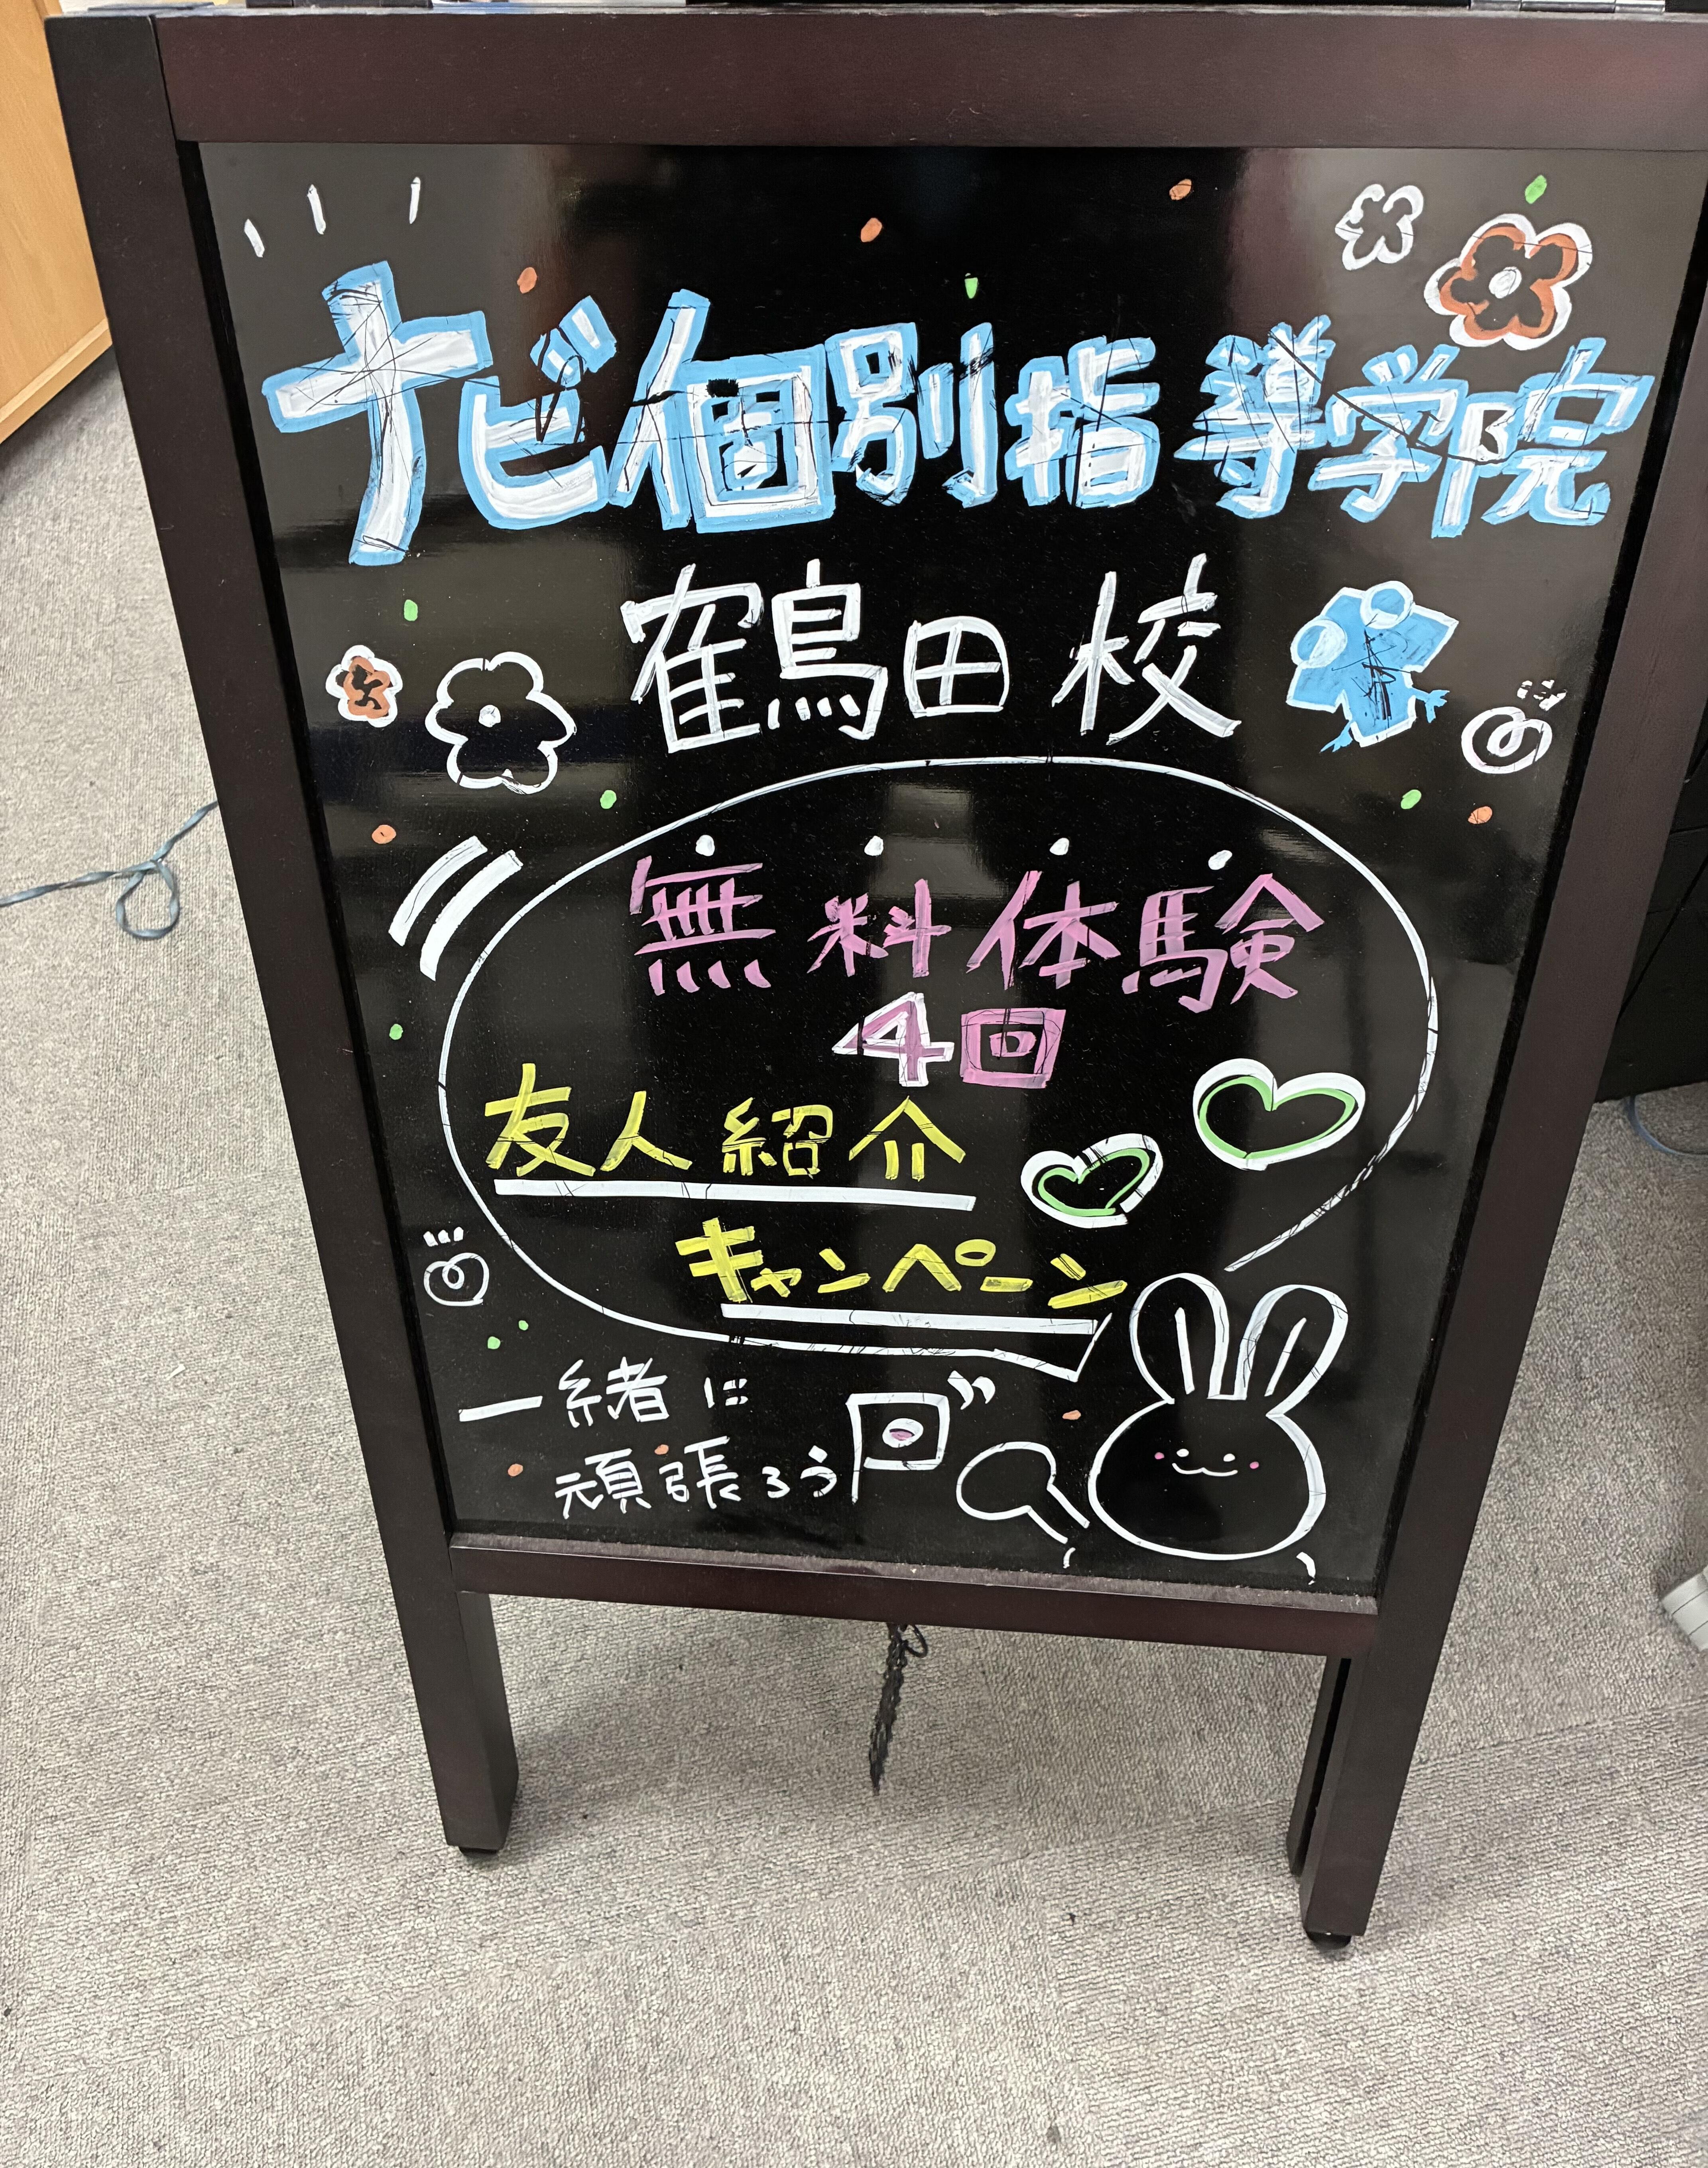 ナビ個別指導学院
鶴田校
無料体験
4回
友人紹介
キャンペーン
一緒に
頑張ろう